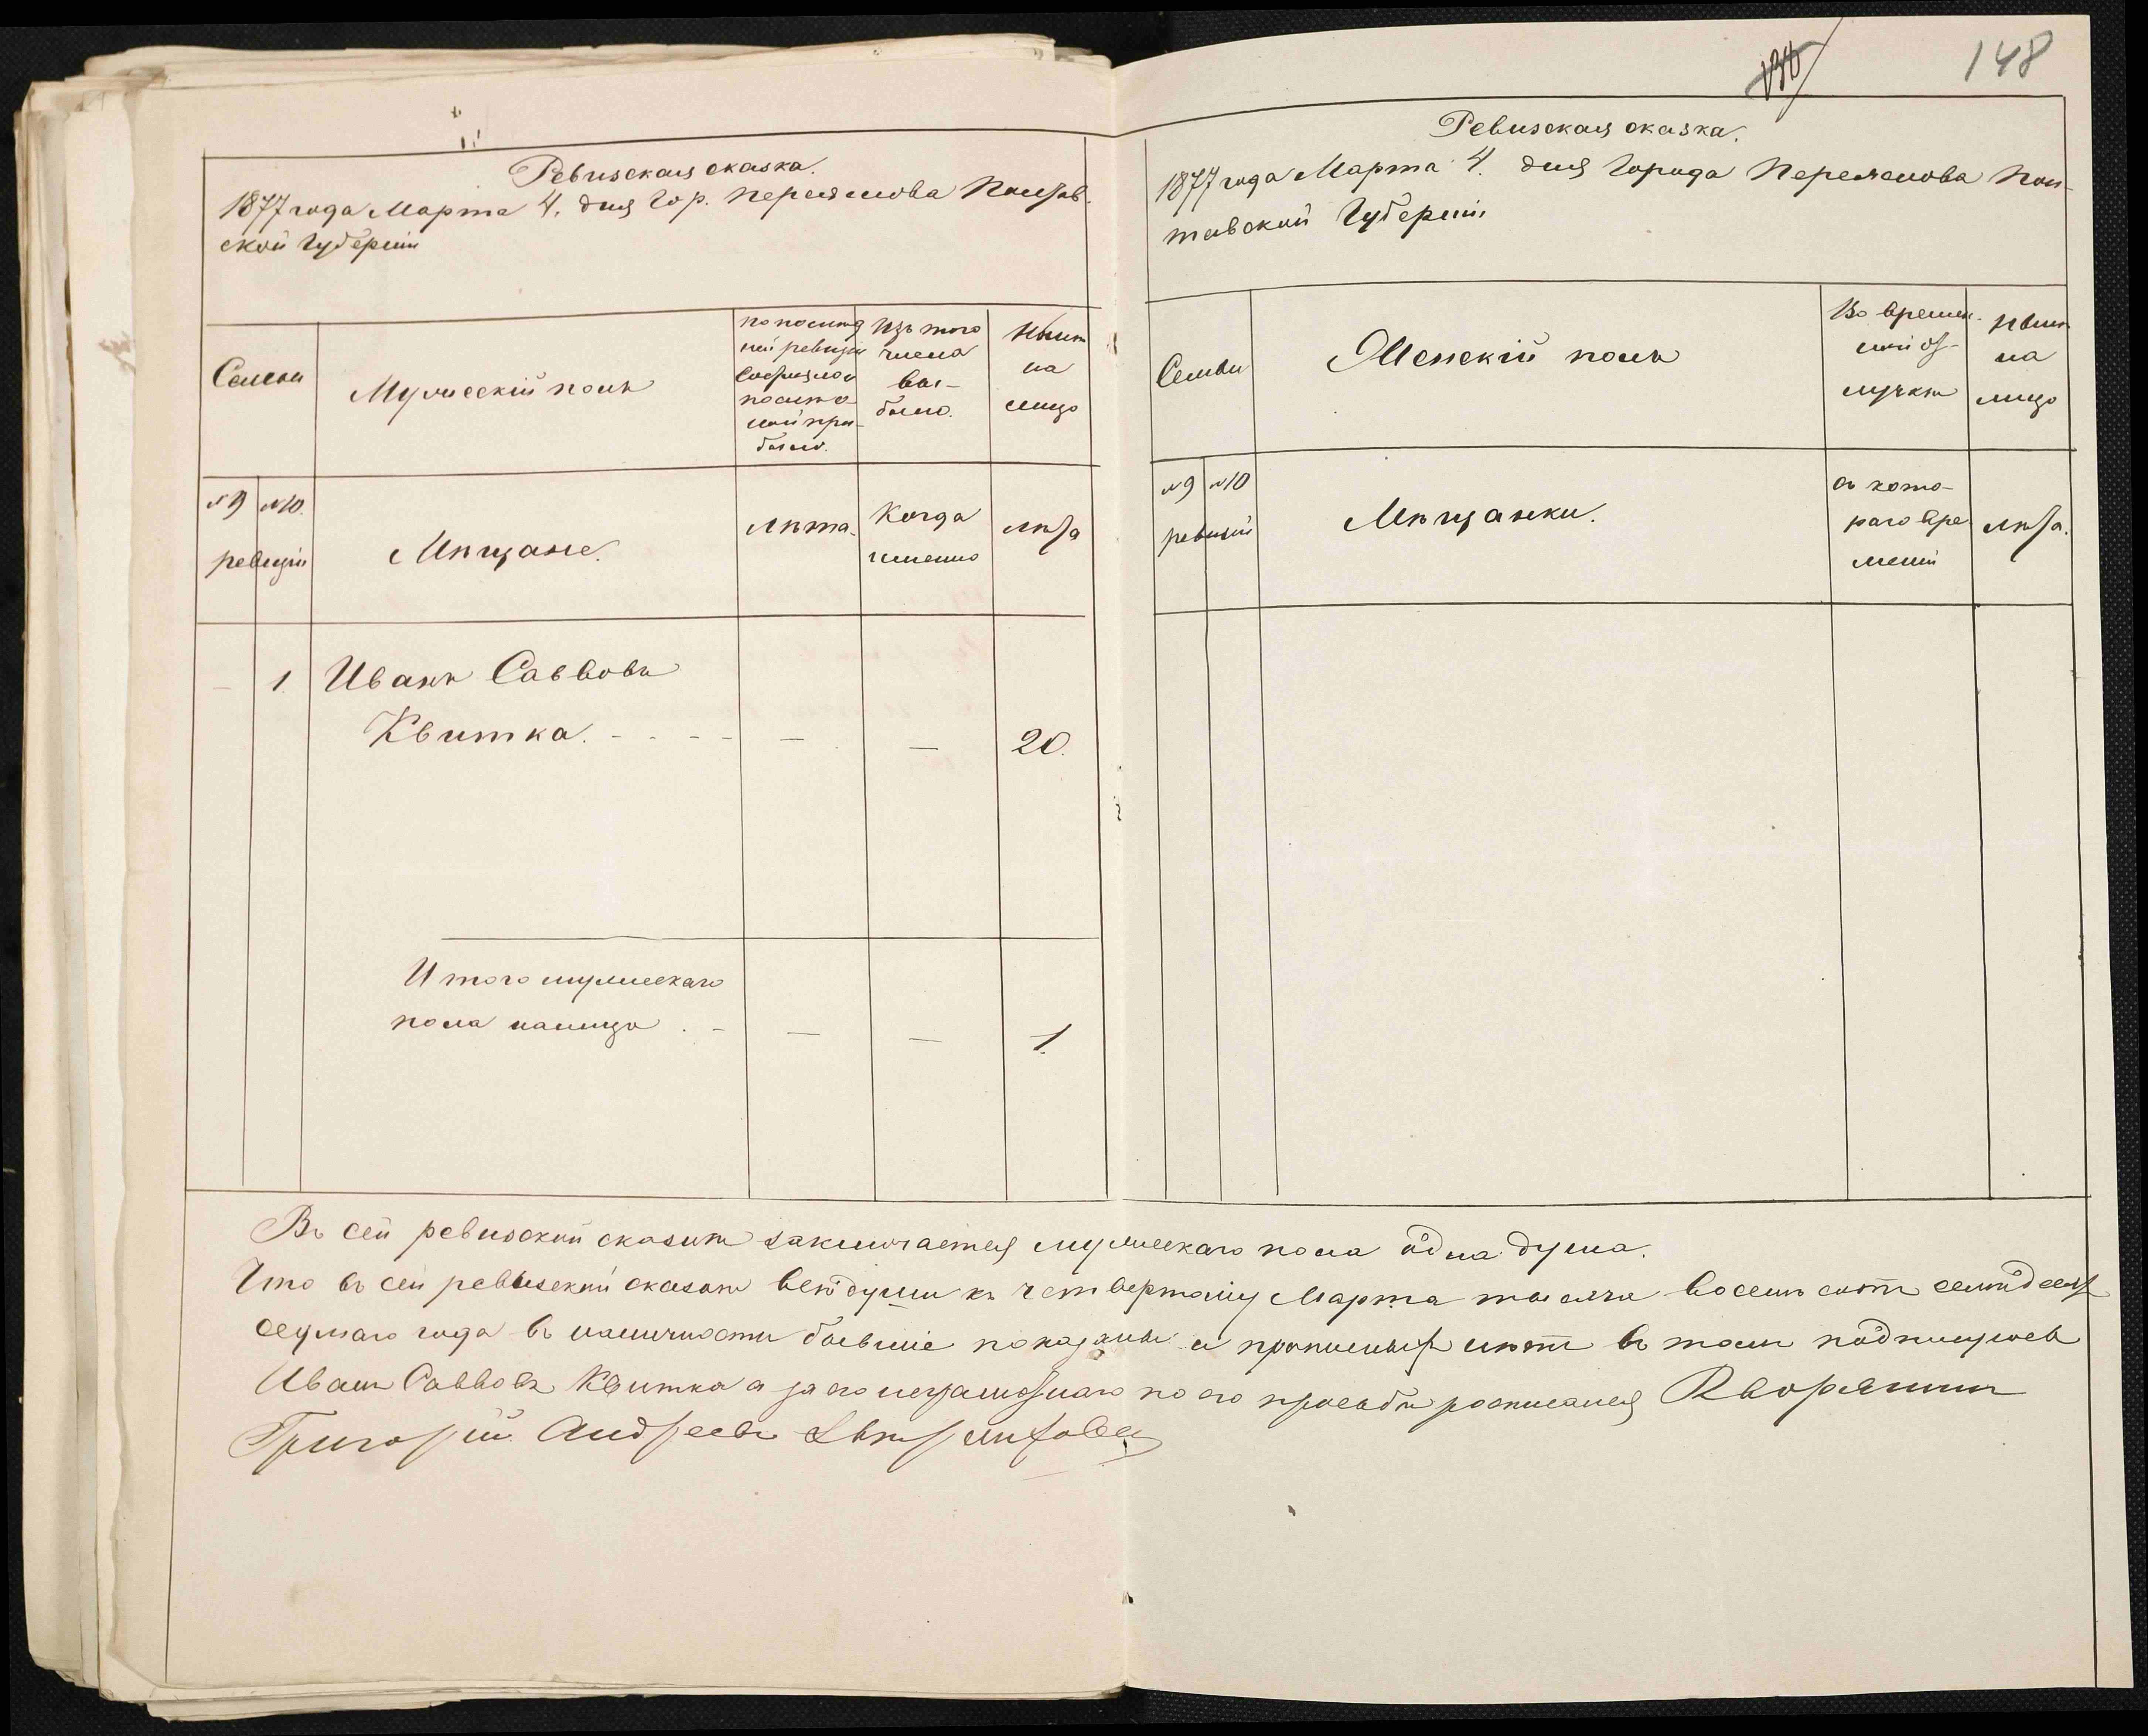 Ревизская сказка.
1877 года Марта 4. дня Гор. Переяслова Полтав-
ской Губерніи
Семьи
Мужескій полъ
по послед
ней ревизіи
состояло и
после то
 прибыло.
Изъ того
числа
вы-
было.
Ныне
на
лицо
№ 9 № 10.
ревизіи
Мѣщане.
Лѣта.
Когда
именно
лѣта
— 1. Иванъ Саввовъ
Квитка. - - - - — — 20.
Итого мужескаго
пола налицо . - — — 1.
148
Ревизская сказка.
1877 года Марта 4. дня Города Переяслова Пол-
тавской Губерніи
Семьи
Женскій полъ
Во времен-
ной от-
лучкѣ
Нынѣ
на
лицо
№ 9 № 10
ревизіи
Мѣщанки.
съ кото-
раго вре
мени
лѣта.
Въ сей ревизской сказкѣ заключается мужескаго пола одна душа.
Что въ сей ревизской сказкѣ всѣ души къ четвертому Марта тысяча восемь сотъ семдесят
седмаго года въ наличности бывшіе показаны и прописныхъ нѣтъ въ томъ подпишусь
Иванъ Саввовъ Квитка а за его неграмотнаго по его просьбѣ росписался Дворянинъ
Григорій Андреевъ